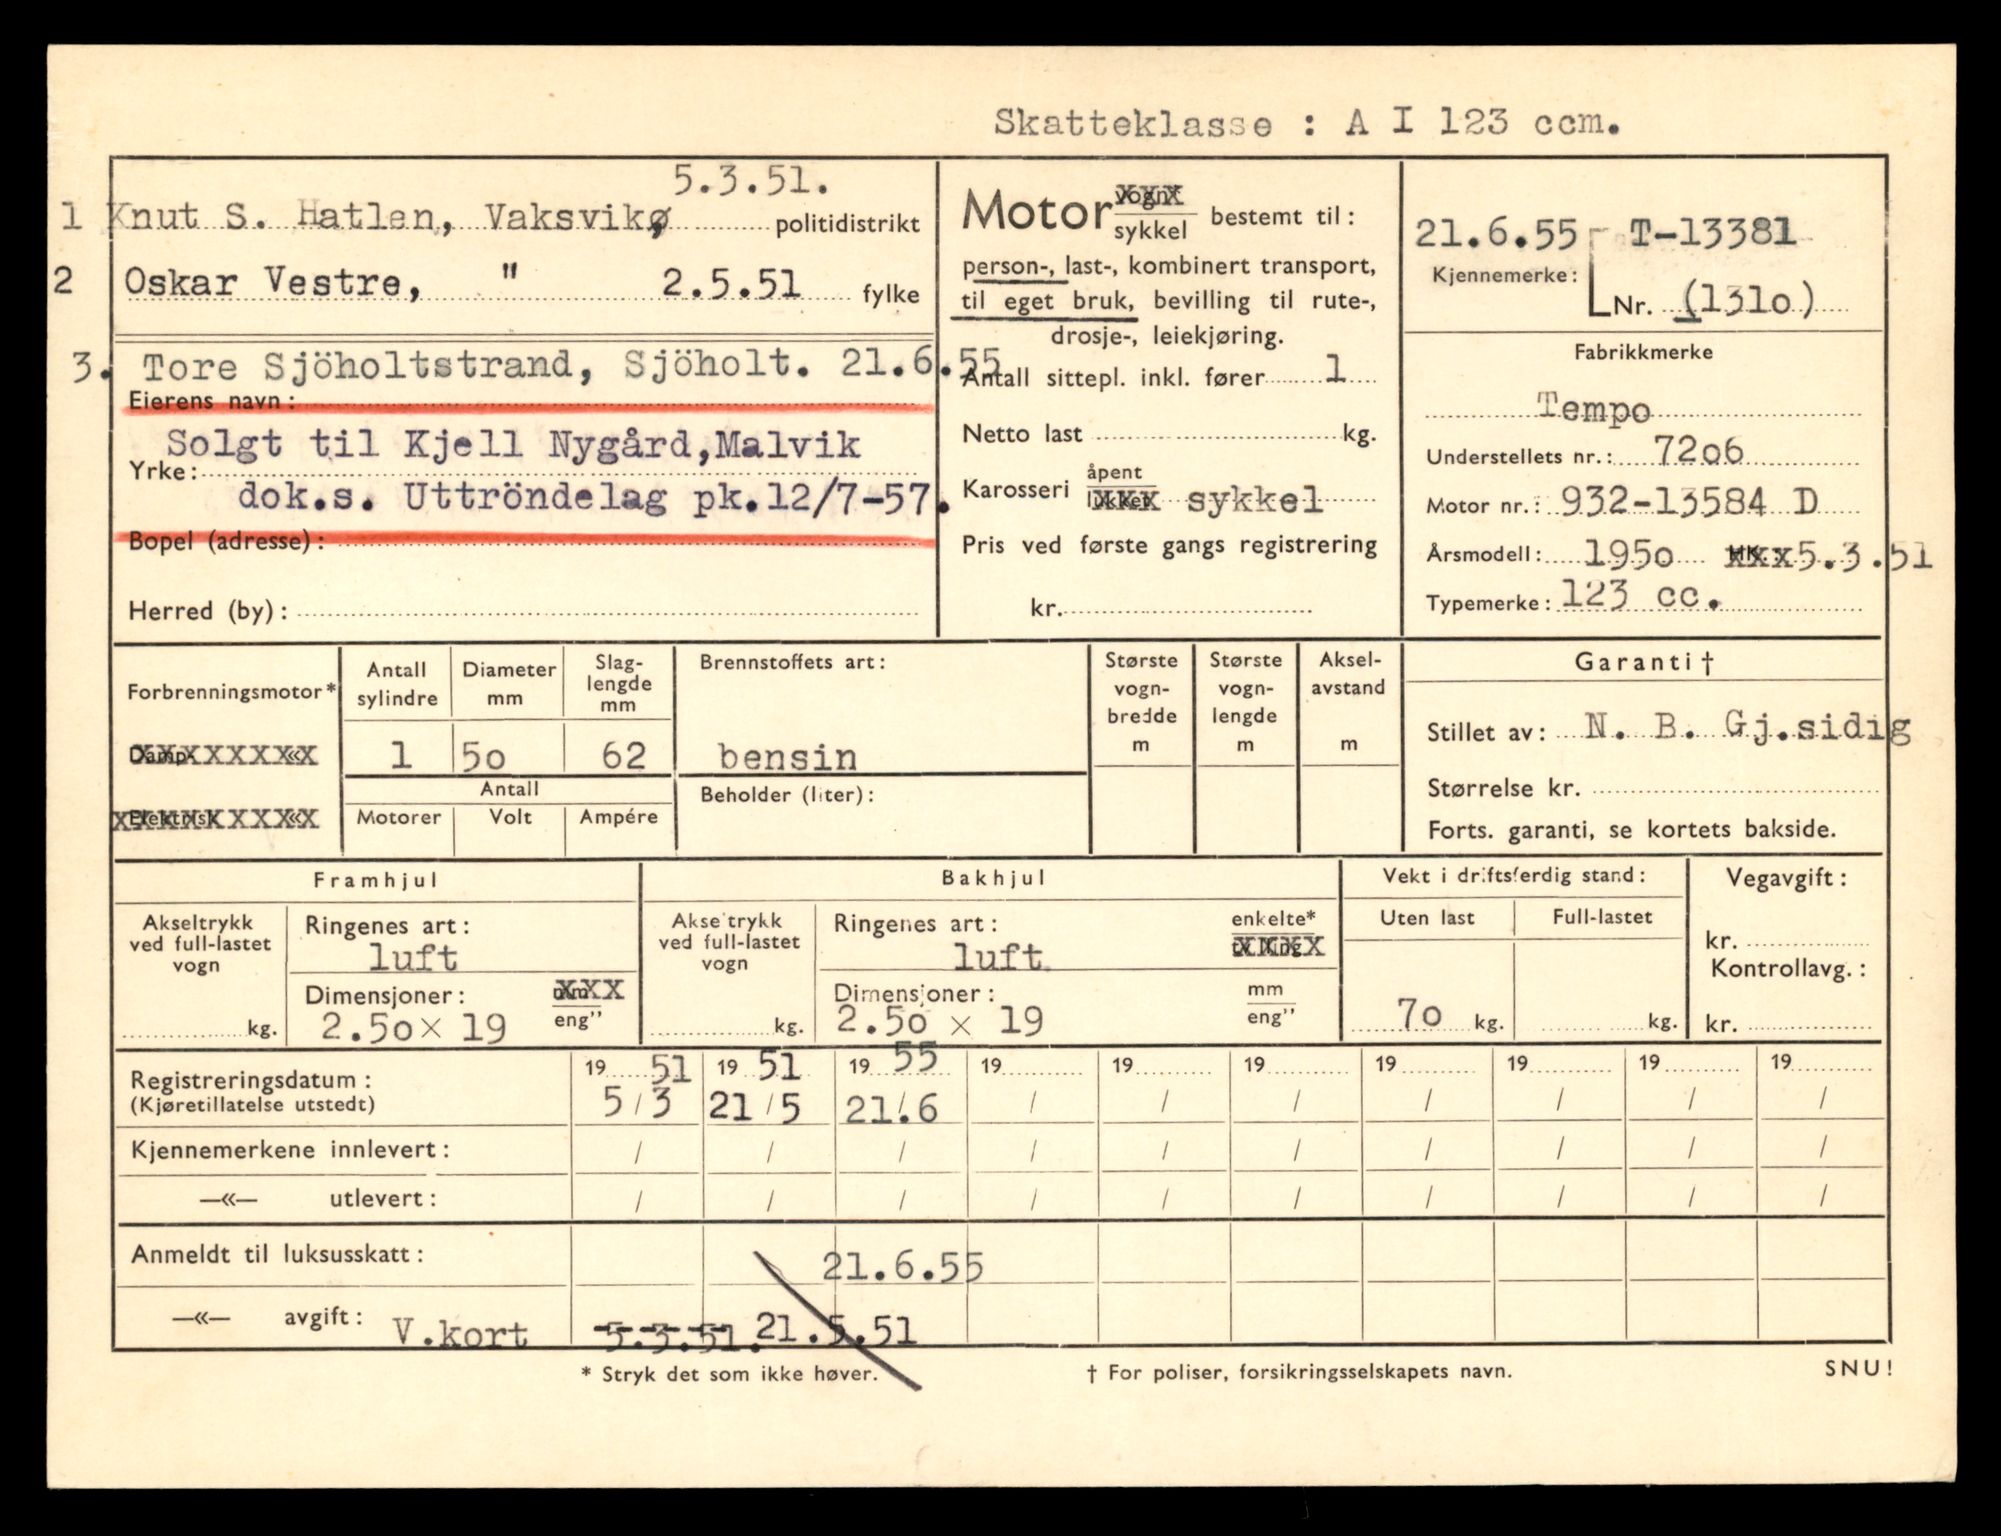 Skatteklasse : A I 123 ccm.
5.3.51.
1 Knut S. Hatlen, Vaksvik, politidistrikt
2 Oskar Vestre, " 2.5.51 fylke
3. Tore Sjöholtstrand, Sjöholt. 21.6.55
Eierens navn:
Solgt til Kjell Nygård,Malvik
Yrke:
dok.s. Uttröndelag pk.12/7-57.
Bopel (adresse):
Herred (by):
Motor vogn xxx
sykkel bestemt til:
person-, last-, kombinert transport,
til eget bruk, bevilling til rute-,
drosje-, leiekjøring.
Antall sittepl. inkl. fører 1
Netto last kg.
Karosseri åpent
lukket xxx sykkel
Pris ved første gangs registrering
kr.
21.6.55 T-13381
Kjennemerke:
Nr. (1310)
Fabrikkmerke
Tempo
Understellets nr.: 7206
Motor nr.: 932-13584 D
Årsmodell: 1950 HK. xxx 5.3.51
Typemerke: 123 cc.
Forbrenningsmotor*
Damp- xxxxxxxx «
Elektrisk xxxxxxxxx «
Antall sylindre
1
Diameter mm
50
Slag-
lengde
mm
62
Antall
Motorer Volt Ampére
Brennstoffets art:
bensin
Beholder (liter):
Største
vogn-
bredde
m
Største
vogn-
lengde
m
Aksel-
avstand
m
Garanti †
Stillet av: N. B. Gj.sidig
Størrelse kr.
Forts. garanti, se kortets bakside.
Framhjul
Akseltrykk
ved full-lastet
vogn
kg.
Ringenes art:
luft
Dimensjoner: mm xxx
eng"
2.50 x 19
Bakhjul
Akseltrykk
ved full-lastet
vogn
kg.
Ringenes art: enkelte*
tvilling xxxx
luft
Dimensjoner: mm
eng"
2.50 x 19
Vekt i driftsferdig stand:
Uten last Full-lastet
70 kg. kg.
Vegavgift:
kr.
Kontrollavg.:
kr.
Registreringsdatum: 19 51 19 51 19 55 19 19 19 19 19 19 19
(Kjøretillatelse utstedt) 5/3 21/5 21.6 / / / / / / /
Kjennemerkene innlevert: / / / / / / / / / /
—«— utlevert: / / / / / / / / / /
Anmeldt til luksusskatt: 21.6.55
—«— avgift: V.kort 5.3.51. 21.5.51
* Stryk det som ikke høver. † For poliser, forsikringsselskapets navn. SNU!